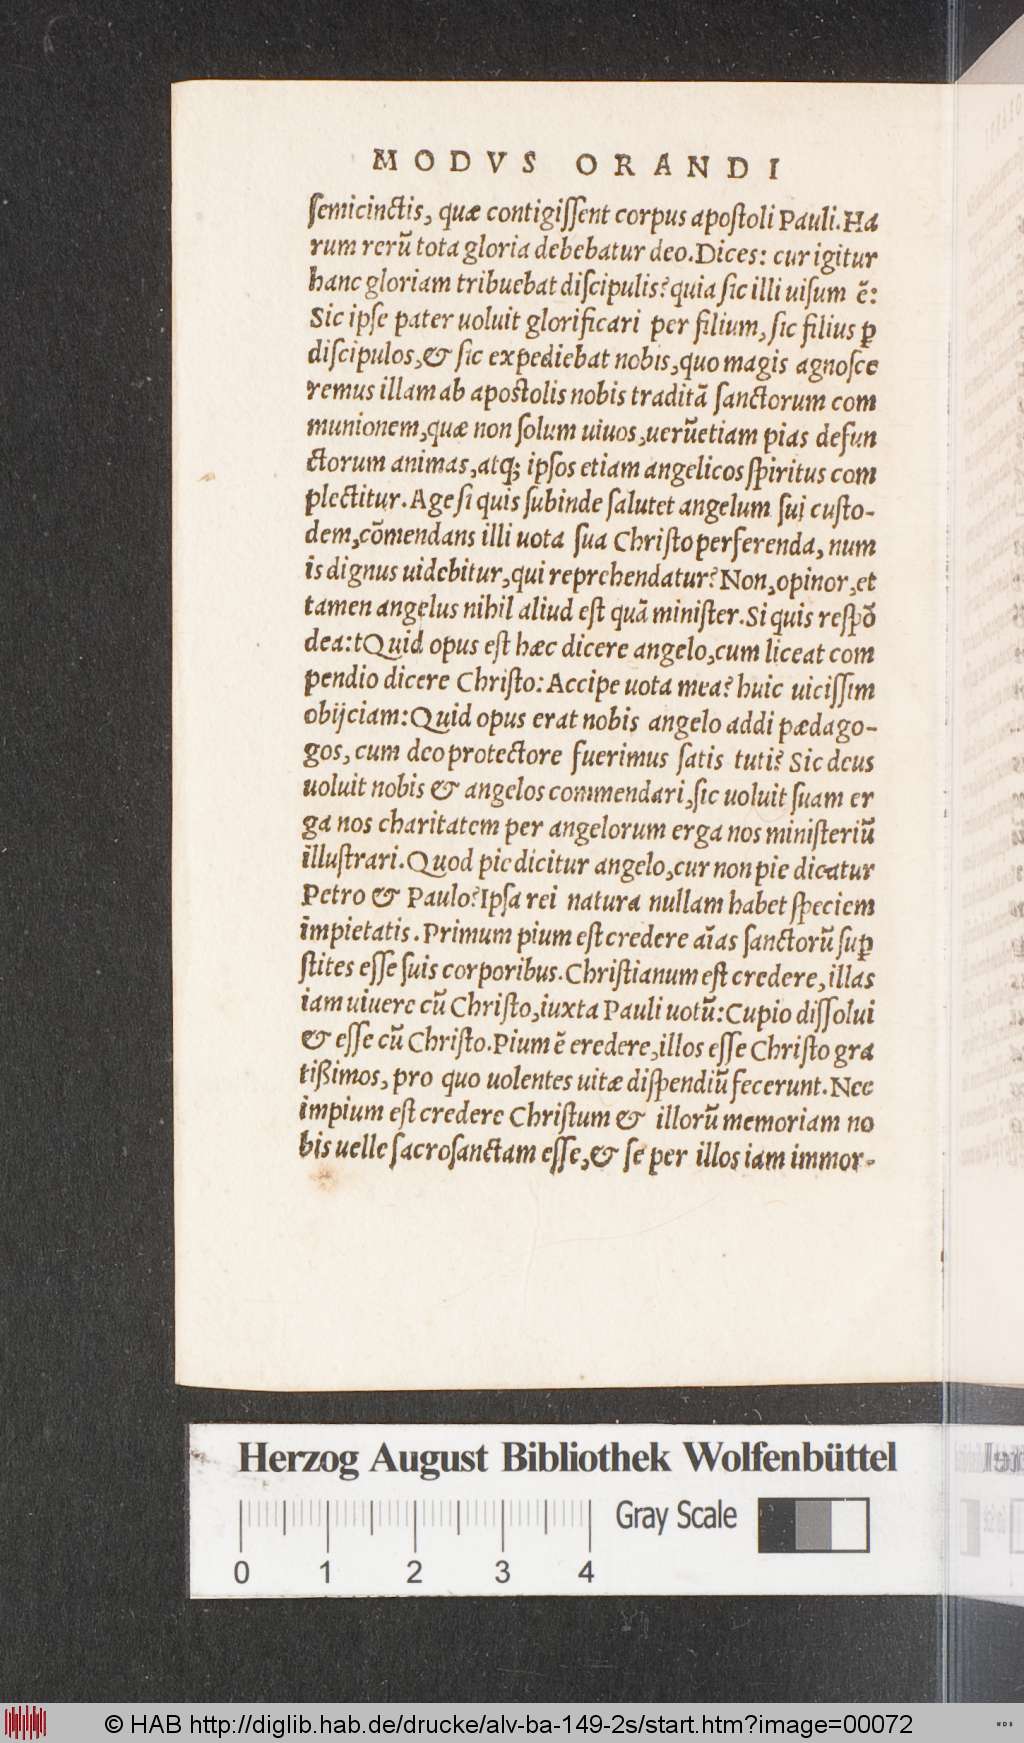 MODVS ORANDI
ſemicinctis, quæ contigiſſent corpus apoſtoli Pauli. Ha
rum rerū tota gloria debebatur deo. Dices: cur igitur
hanc gloriam tribuebat diſcipulis? quia ſic illi uiſum ē:
Sic ipſe pater uoluit glorificari per filium, ſic filius ꝑ
diſcipulos, & ſic expediebat nobis, quo magis agnoſce
remus illam ab apoſtolis nobis traditā ſanctorum com
munionem, quæ non ſolum uiuos, uerūetiam pias defun
ctorum animas, atq; ipſos etiam angelicos ſpiritus com
plectitur. Age ſi quis ſubinde ſalutet angelum ſui cuſto-
dem, cōmendans illi uota ſua Chriſto perferenda, num
is dignus uidebitur, qui reprehendatur? Non, opinor, et
tamen angelus nihil aliud eſt quā miniſter. Si quis reſpō
dea:tQuid opus eſt hæc dicere angelo, cum liceat com
pendio dicere Chriſto: Accipe uota mea? huic uiciſſim
obijciam: Quid opus erat nobis angelo addi pædago-
gos, cum deo protectore fuerimus ſatis tuti? Sic deus
uoluit nobis & angelos commendari, ſic uoluit ſuam er
ga nos charitatem per angelorum erga nos miniſteriū
illuſtrari. Quod pie dicitur angelo, cur non pie dicatur
Petro & Paulo? Ipſa rei natura nullam habet ſpeciem
impietatis. Primum pium eſt credere aīas ſanctorū ſuꝑ
ſtites eſſe ſuis corporibus. Chriſtianum eſt credere, illas
iam uiuere cū Chriſto, iuxta Pauli uotū: Cupio diſſolui
& eſſe cū Chriſto. Pium ē eredere, illos eſſe Chriſto gra
tißimos, pro quo uolentes uitæ diſpendiū fecerunt. Nec
impium eſt credere Chriſtum & illorū memoriam no
bis uelle ſacroſanctam eſſe, & ſe per illos iam immor-
Herzog August Bibliothek Wolfenbüttel
Gray Scale
0 1 2 3 4
© HAB http://diglib.hab.de/drucke/alv-ba-149-2s/start.htm?image=00072